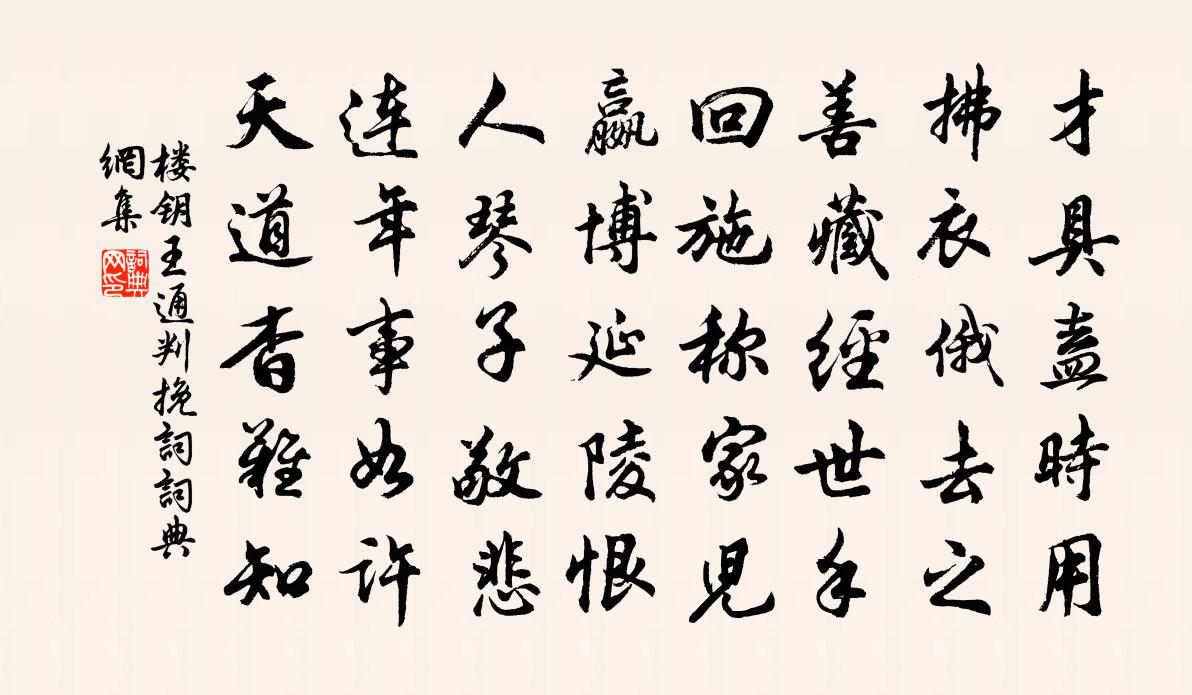 才具盍時用
拂衣俄去之
善藏經世手
回施称家児
嬴博延陵恨
人琴子敬悲
連年事如許
天道杳難知
楼钥王通判挽詞詞典
網集
詞典
网印